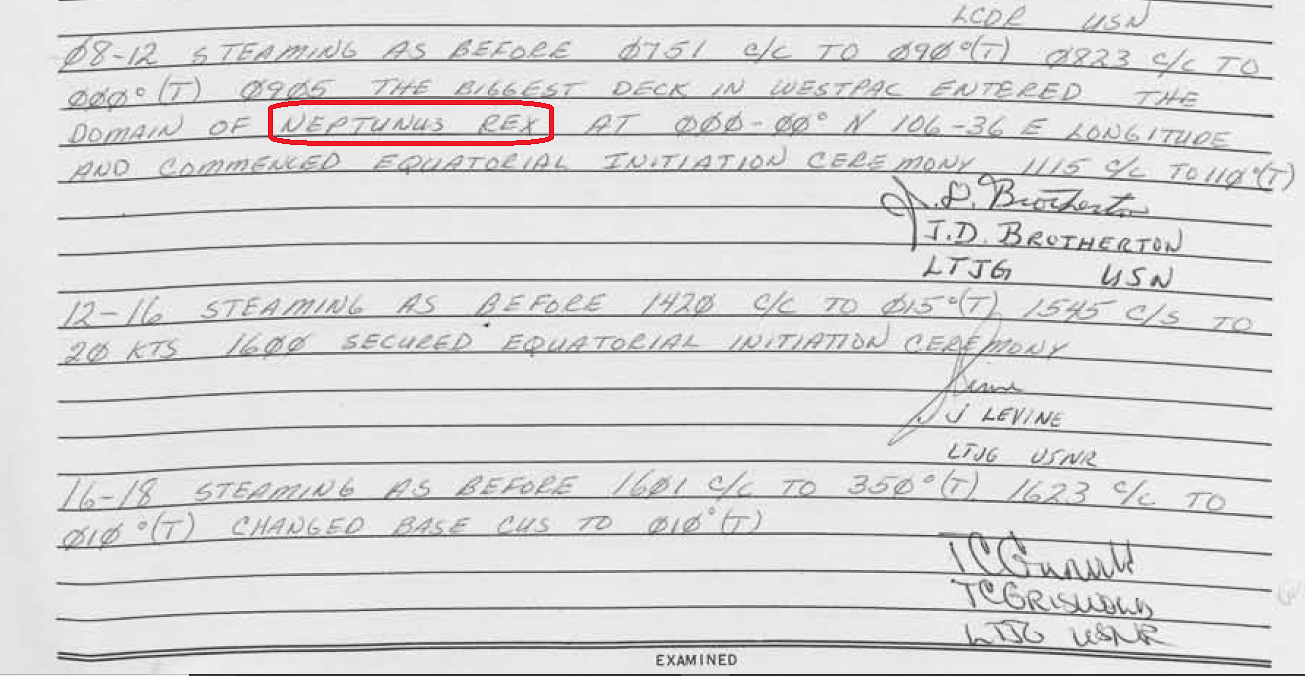 LCDR USN
Ø8-12 STEAMING AS BEFORE Ø751 C/C TO Ø9Ø°(T) Ø823 C/C TO
ØØØ°(T) Ø9Ø5 THE BIGGEST DECK IN WESTPAC ENTERED THE
DOMAIN OF NEPTUNUS REX AT ØØØ-ØØ° N 106-36 E LONGITUDE
AND COMMENCED EQUATORIAL INITIATION CEREMONY 1115 C/C TO 11Ø°(T)
J.D. Brotherton
J.D. BROTHERTON
LTJG USN
12-16 STEAMING AS BEFORE 142Ø C/C TO Ø15°(T) 1545 C/S TO
2Ø KTS 16ØØ SECURED EQUATORIAL INITIATION CEREMONY
J LEVINE
LTJG USNR
16-18 STEAMING AS BEFORE 16Ø1 C/C TO 35Ø°(T) 1623 C/C TO
Ø1Ø°(T) CHANGED BASE CUS TO Ø1Ø°(T)
TCGRISWOLD
LTJG USNR
EXAMINED